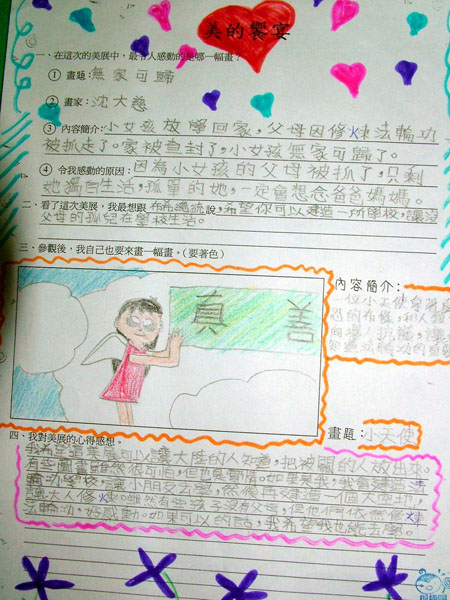 美的饗宴
一、在這次的美展中，最令人感動的是哪一幅畫？
① 畫題：無家可歸
② 畫家：沈大慈
③ 內容簡介：小女孩放學回家，父母因修煉法輪功
被抓走了。家被查封了，小女孩無家可歸了。
④ 令我感動的原因：因為小女孩的父母被抓了，只剩
她獨自生活，孤單的她，一定會想念爸爸媽媽。
二、看了這次美展，我最想跟布希總統說，希望你可以建造一所學校，讓沒
父母的孤兒在學校生活。
三、參觀後，我自己也要來畫一幅畫。（要著色）
真 善
內容簡介：
一位小天使拿著真
忍的布條，和人類
畫題：小天使
四、我對美展的心得感想。
我希望這畫可以讓大陸的人知道，把被關的人放出來。
有些圖畫雖然很可怕，但也
輪功學校，讓小朋友去學，然後再建造一個大
讓大人修煉。雖然有些孩子沒有父母，但他們依然修煉
法輪功，好感動。如果可以的話，我希望我也能去學。